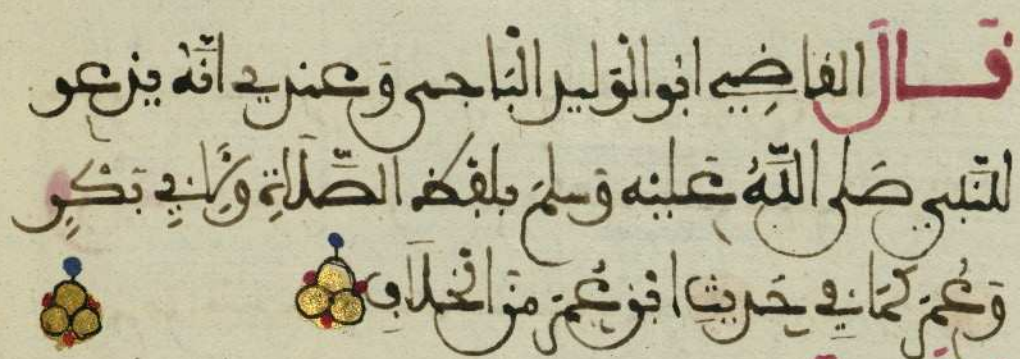 قَالَ القاضِي ابو الوَليد البَاجي وَعندِي انّهُ يدعو
للنّبي صَلى اللّهُ عَليْه وَسلمَ بلفظ الصّلاةِ وَلأبِي بَكْرٍ
وَعُمَرَ كمَا في حَديثِ ابْن عُمَرَ منَ الخلَافِ